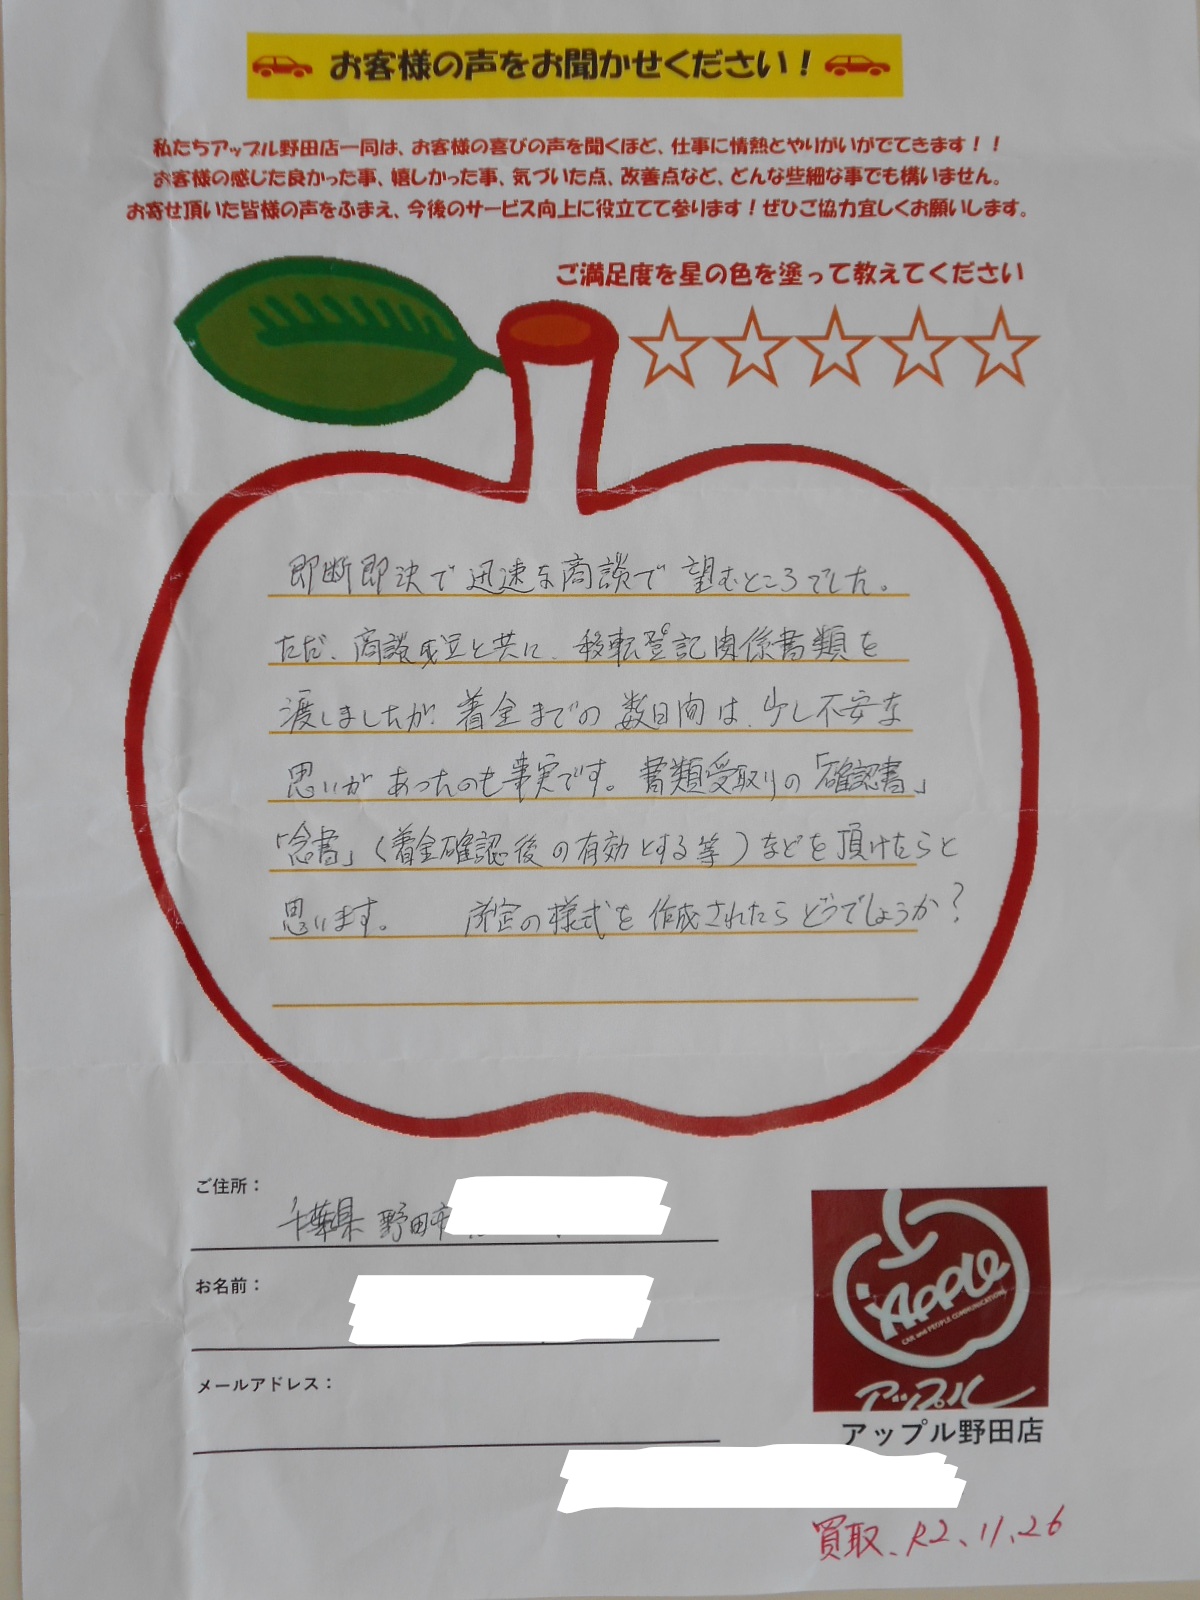 お客様の声をお聞かせください！
私たちアップル野田店一同は、お客様の喜びの声を聞くほど、仕事に情熱とやりがいがでてきます！！
お客様の感じた良かった事、嬉しかった事、気づいた点、改善点など、どんな些細な事でも構いません。
お寄せ頂いた皆様の声をふまえ、今後のサービス向上に役立てて参ります！ぜひご協力宜しくお願いします。
ご満足度を星の色を塗って教えてください
即断即決で迅速な商談で望むところでした。
ただ、商談成立と共に、移転登記関係書類を
渡しましたが着金までの数日間は、少し不安な
思いがあったのも事実です。書類受取りの「確認書」
「念書」（着金確認後の有効とする等）などを頂けたらと
思います。 所定の様式を作成されたらどうでしょうか？
ご住所：
千葉県 野田市
お名前：
メールアドレス：
Apple
CAR and PEOPLE COMMUNICATIONS
アップル
アップル野田店
買取、R2、11、26